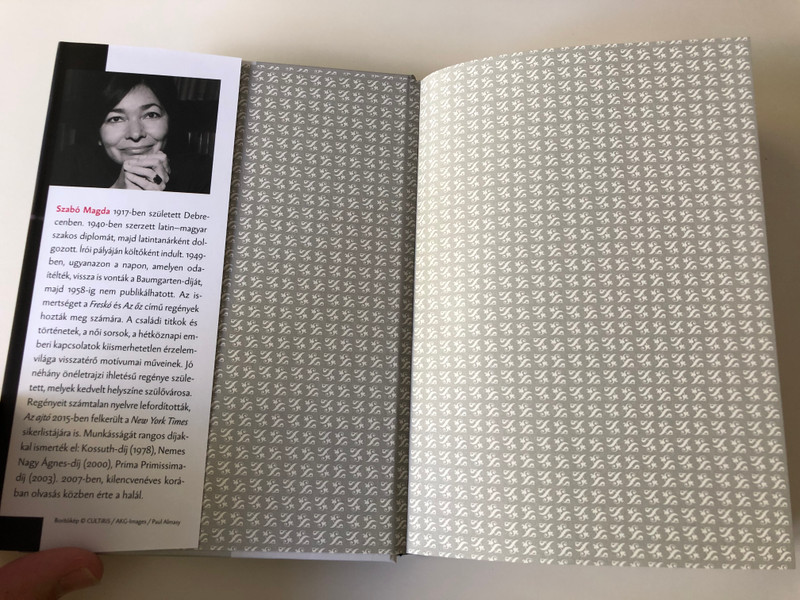 Szabó Magda 1917-ben született Debre-
cenben. 1940-ben szerzett latin–magyar
szakos diplomát, majd latintanárként dol-
gozott. Írói pályáján költőként indult. 1949-
ben, ugyanazon a napon, amelyen oda-
ítélték, vissza is vonták a Baumgarten-díját,
majd 1958-ig nem publikálhatott. Az is-
mertséget a Freskó és Az őz című regények
hozták meg számára. A családi titkok és
történetek, a női sorsok, a hétköznapi em-
beri kapcsolatok kiismerhetetlen érzelem-
világa visszatérő motívumai műveinek. Jó
néhány önéletrajzi ihletésű regénye szüle-
tett, melyek kedvelt helyszíne szülővárosa.
Regényeit számtalan nyelvre lefordították,
Az ajtó 2015-ben felkerült a New York Times
sikerlistájára is. Munkásságát rangos díjak-
kal ismerték el: Kossuth-díj (1978), Nemes
Nagy Ágnes-díj (2000), Prima Primissima-
díj (2003). 2007-ben, kilencvenéves korá-
ban olvasás közben érte a halál.
Borítókép © CULTIRIS / AKG-Images / Paul Almasy